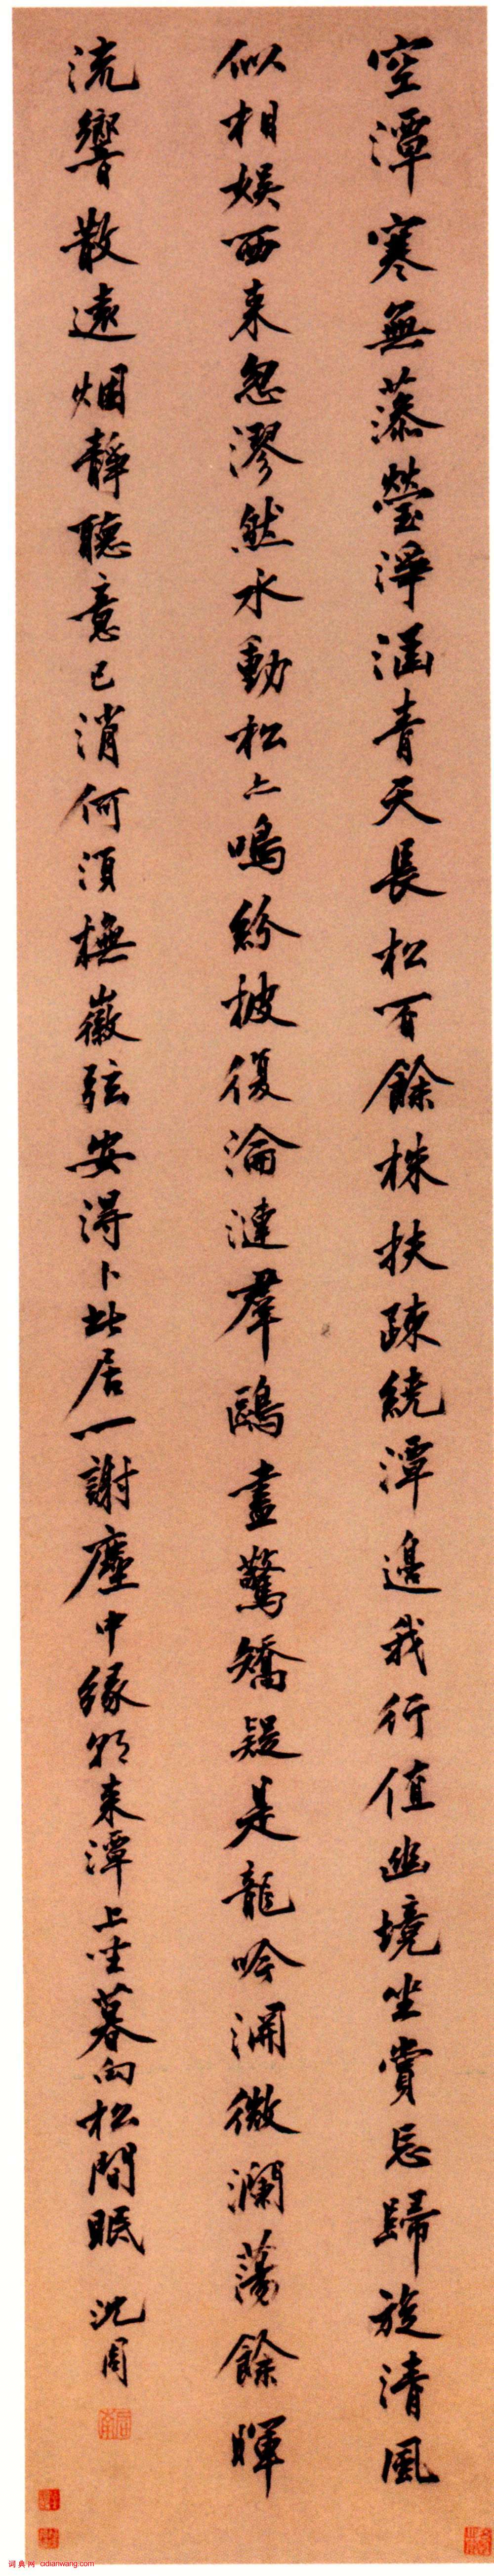 空潭寒無藻瑩淨涵青天長松百餘株扶疎繞潭邊我行值幽境坐賞忘歸旋清風
似相娛西來忽漻然水動松亦鳴紛披復淪漣羣鷗盡驚矯疑是龍吟淵微瀾蕩餘暉
流響散遠烟靜聽意已消何須撫徽弦安得卜此居一謝塵中緣朝來潭上坐暮向松間眠 沈周
词典网 cidianwang.com